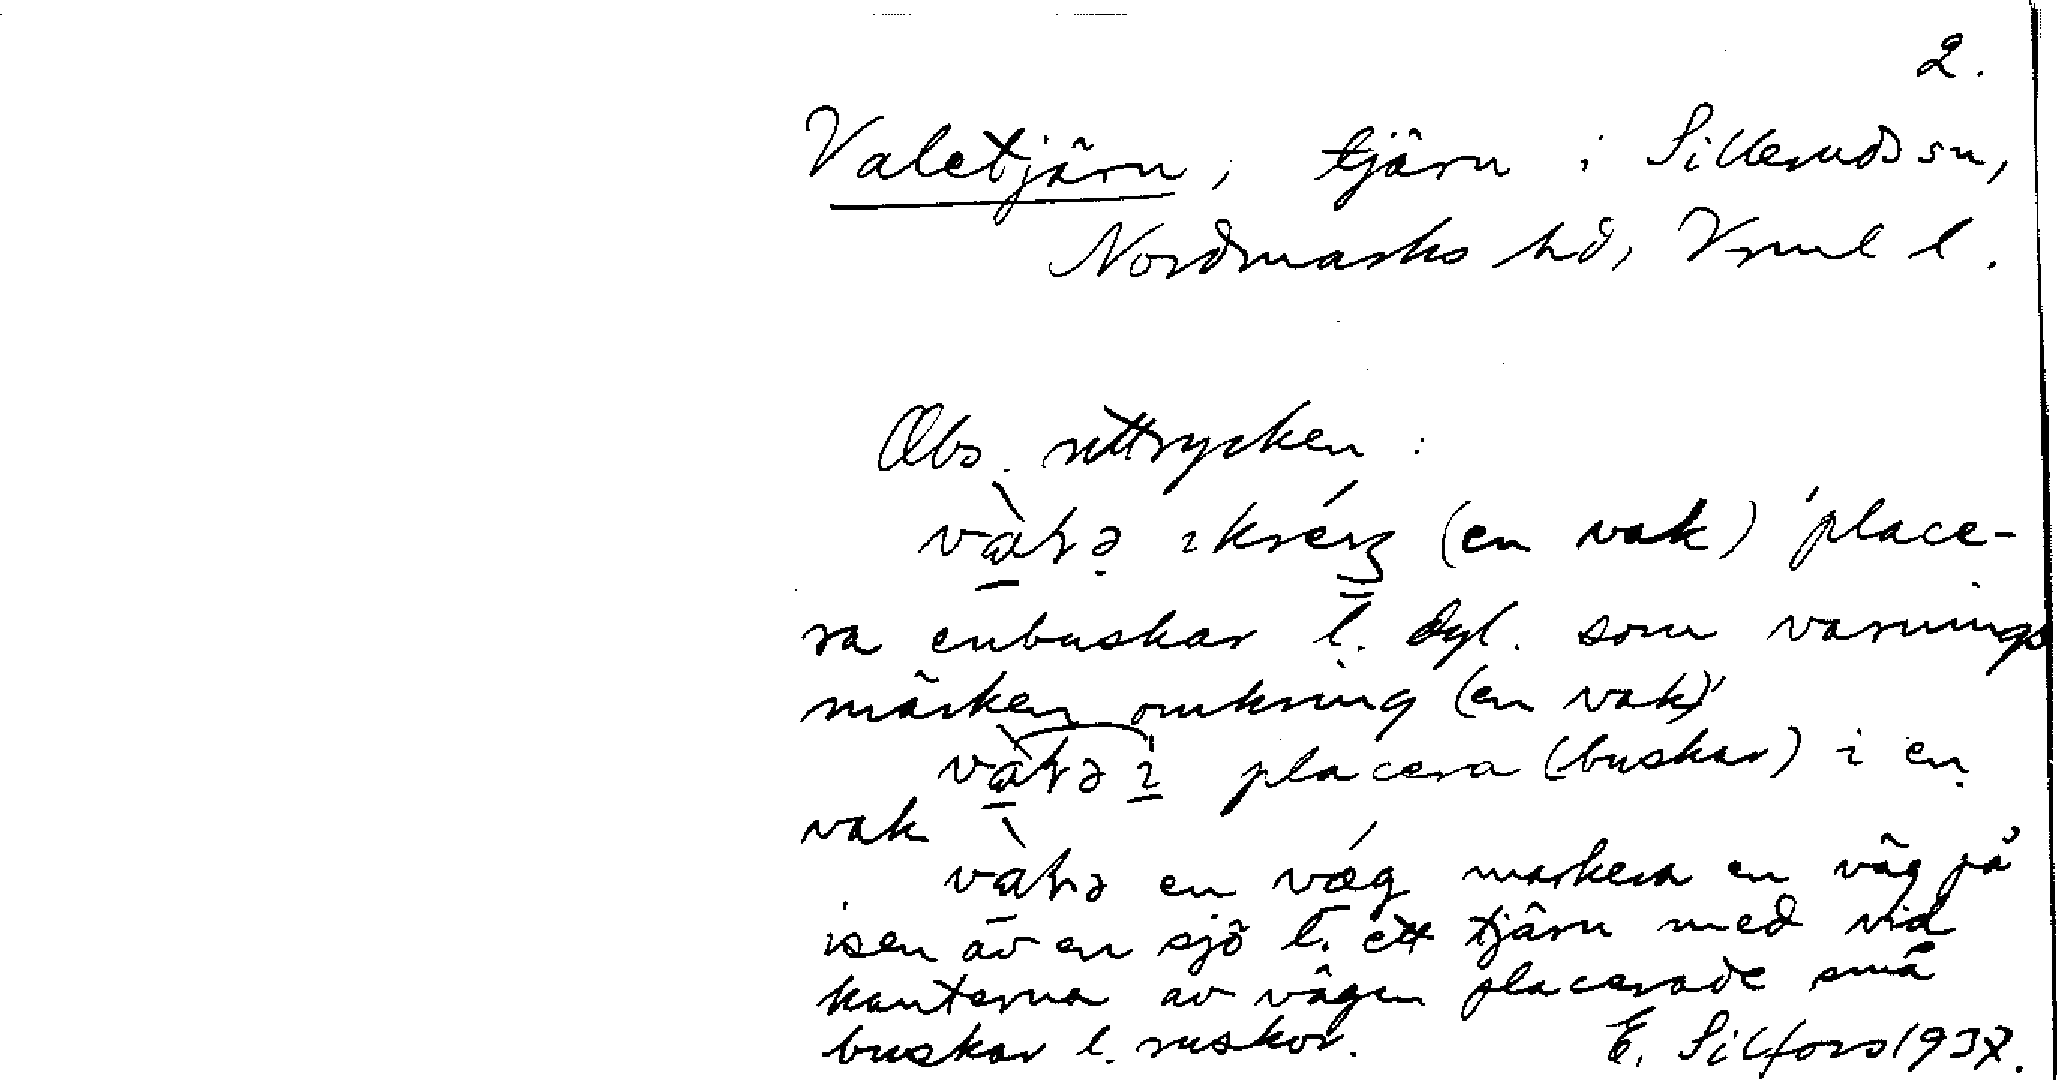 2.
Valetjärn, tjärn i Silleruds sn,
Nordmarks hd, Vrml l.
Obs. uttrycken:
(en vak) 'place-
ra enbuskar l. dyl. som varnings
märken omkring (en vak)'
placera (buskar) i en
vak
en väg markera en väg på
isen av en sjö l. ett tjärn med vid
kanterna av vägen placerade små
buskar l. ruskor. E. Silfors 1937.